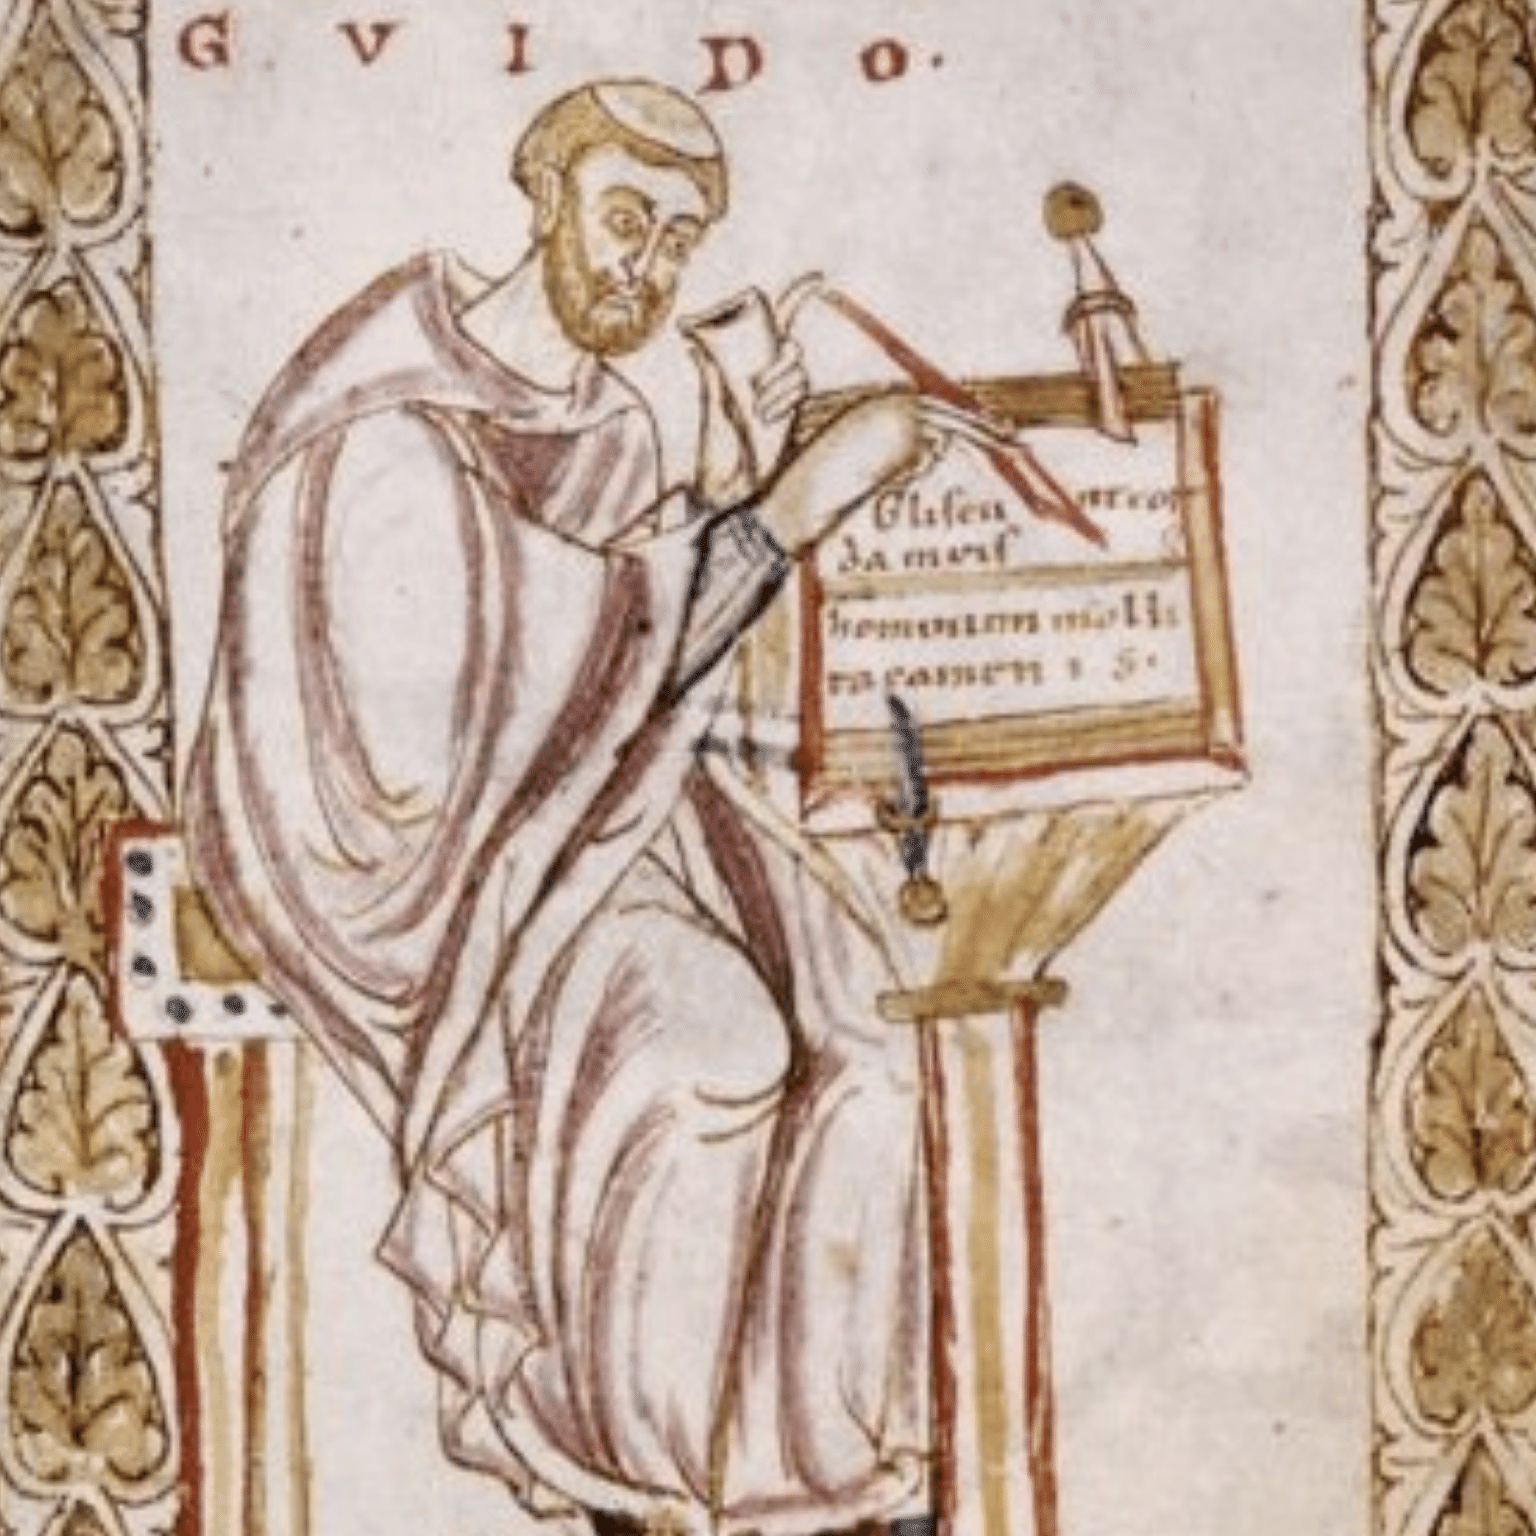 GVIDO·
Gliscu nt cor
da meis
hominum molli
ta camen i s·